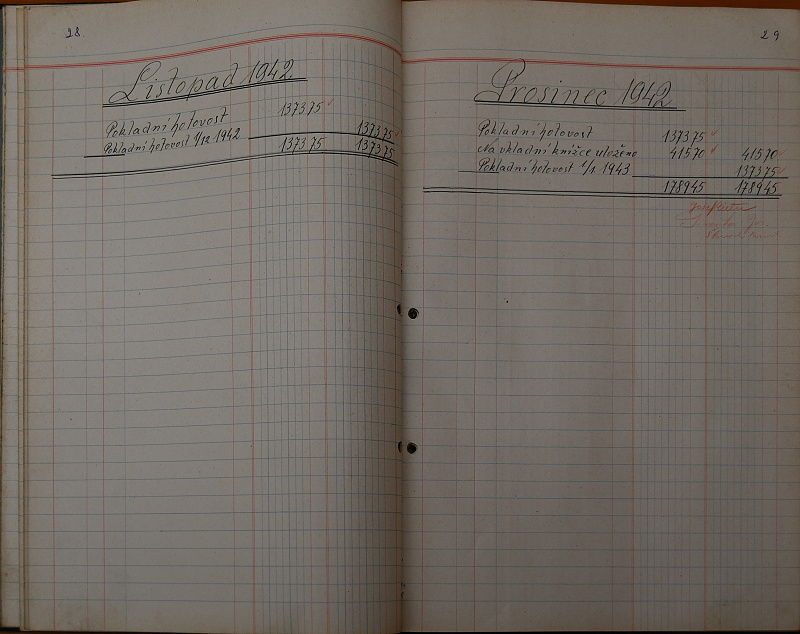 28
Listopad 1942.
Pokladní hotovost 137375
137375
Pokladní hotovost 1/12 1942 137375 137375
29
Prosinec 1942.
Pokladní hotovost 137375
Na vkladní knížce uloženo 41570 41570
Pokladní hotovost 1/1 1943 137375
178945 178945